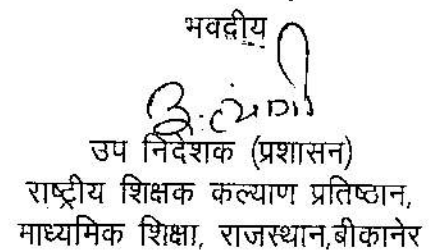 भवदीय
उप निदेशक (प्रशासन)
राष्ट्रीय शिक्षक कल्याण प्रतिष्ठान,
माध्यमिक शिक्षा, राजस्थान,बीकानेर